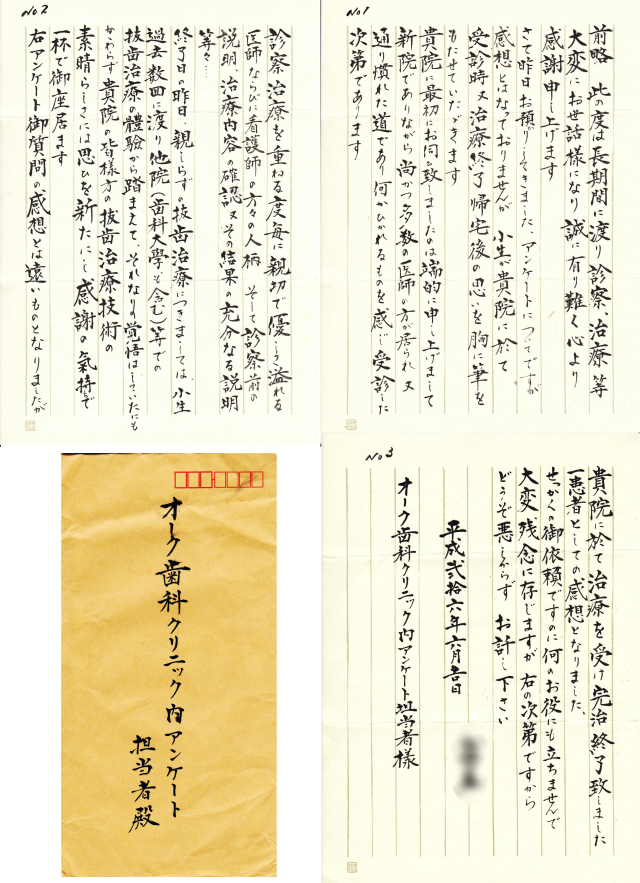 No1
前略 此の度は長期間に渡り診察、治療等
大変にお世話様になり誠に有り難く心より
感謝申し上げます
さて昨日お預りしてきました アンケートについてですが
感想とはなっておりませんが 小生が貴院に於て
受診時又治療終了帰宅後の思いを胸に筆を
もたせていただきます
貴院に最初にお伺い致しましたのは端的に申し上げまして
新院でありながら尚かつ多数の医師の方が居られ 又
通り慣れた道であり何かひかれるものを感じ受診した
次第であります
No2
診察治療を重ねる度毎に親切で優しさ溢れる
医師ならびに看護師の方々の人柄 そして診察前の
説明 治療内容の確認又その結果の充分なる説明
等々…
終了日の昨日、親しらずの抜歯治療につきましては、小生
過去数回に渡り他院(歯科大學も含む)等での
抜歯治療の體験から踏まえて、それなりの覚悟はしていたにも
かかわらず貴院の皆様方の抜歯治療技術の
素晴らしさには思ひを新たにし感謝の氣持で
一杯で御座居ます
右アンケート御質問の感想とは遠いものとなりましたが
No3
貴院に於て治療を受け完治終了致しました
一患者としての感想となりました、
せっかくの御依頼ですのに何のお役にも立ちませんで
大変残念に存じますが右の次第ですから
どうぞ悪しからず お許し下さい
平成弐拾六年六月吉日
オーク歯科クリニック内アンケート担当者様
オーク歯科クリニック内アンケート
担当者殿